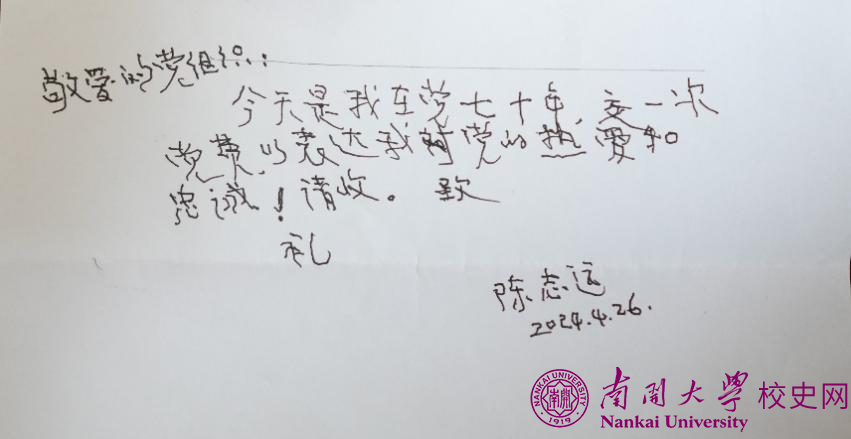 敬爱的党组织:
今天是我在党七十年,交一次
党费,以表达我对党的热爱和
忠诚!请收。致
礼
陈志远
2024.4.26.
NANKAI UNIVERSITY
1919
南開大學校史网
Nankai University